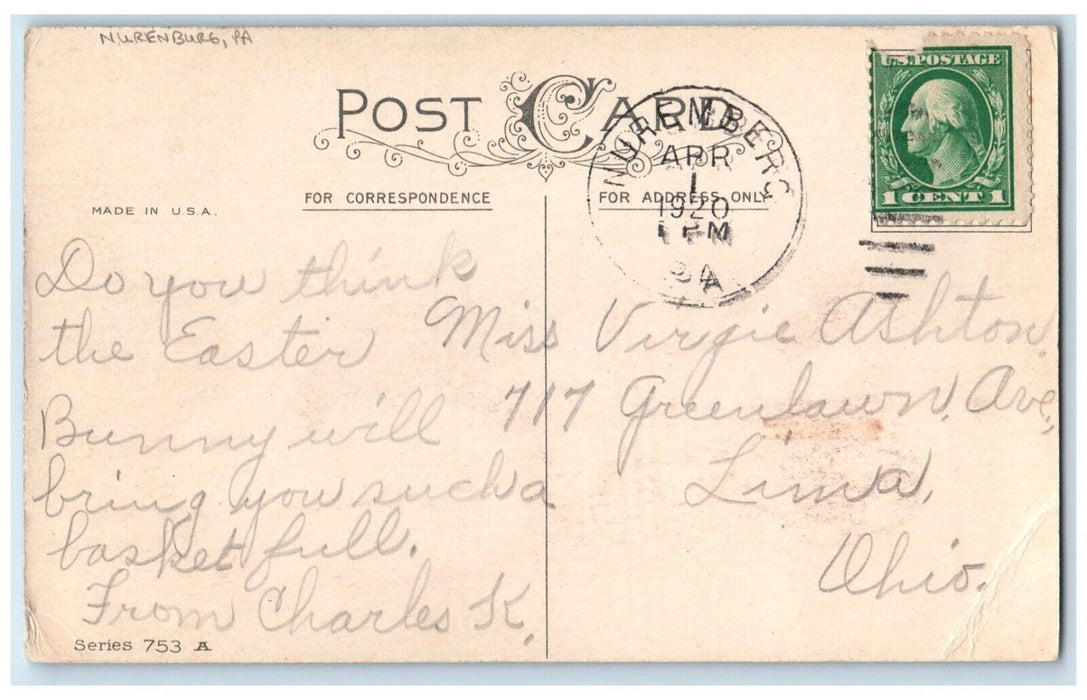 NURENBURG, PA
POST CARD
U.S. POSTAGE
1 CENT 1
NUREMBERG
APR
1
1920
1 PM
PA
FOR CORRESPONDENCE
FOR ADDRESS ONLY
MADE IN U.S.A.
Do you think
the Easter
Bunny will
bring you such a
basket full.
From Charles K.
Miss Virgie Ashton
717 Greenlawn, Ave,
Lima,
Ohio.
Series 753 A